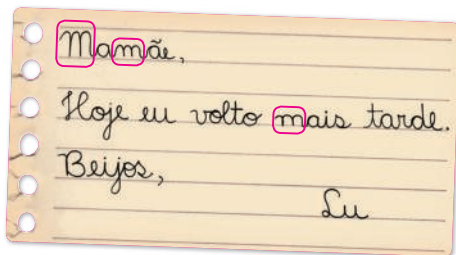 Mamãe,
Hoje eu volto mais tarde.
Beijos,
Lu